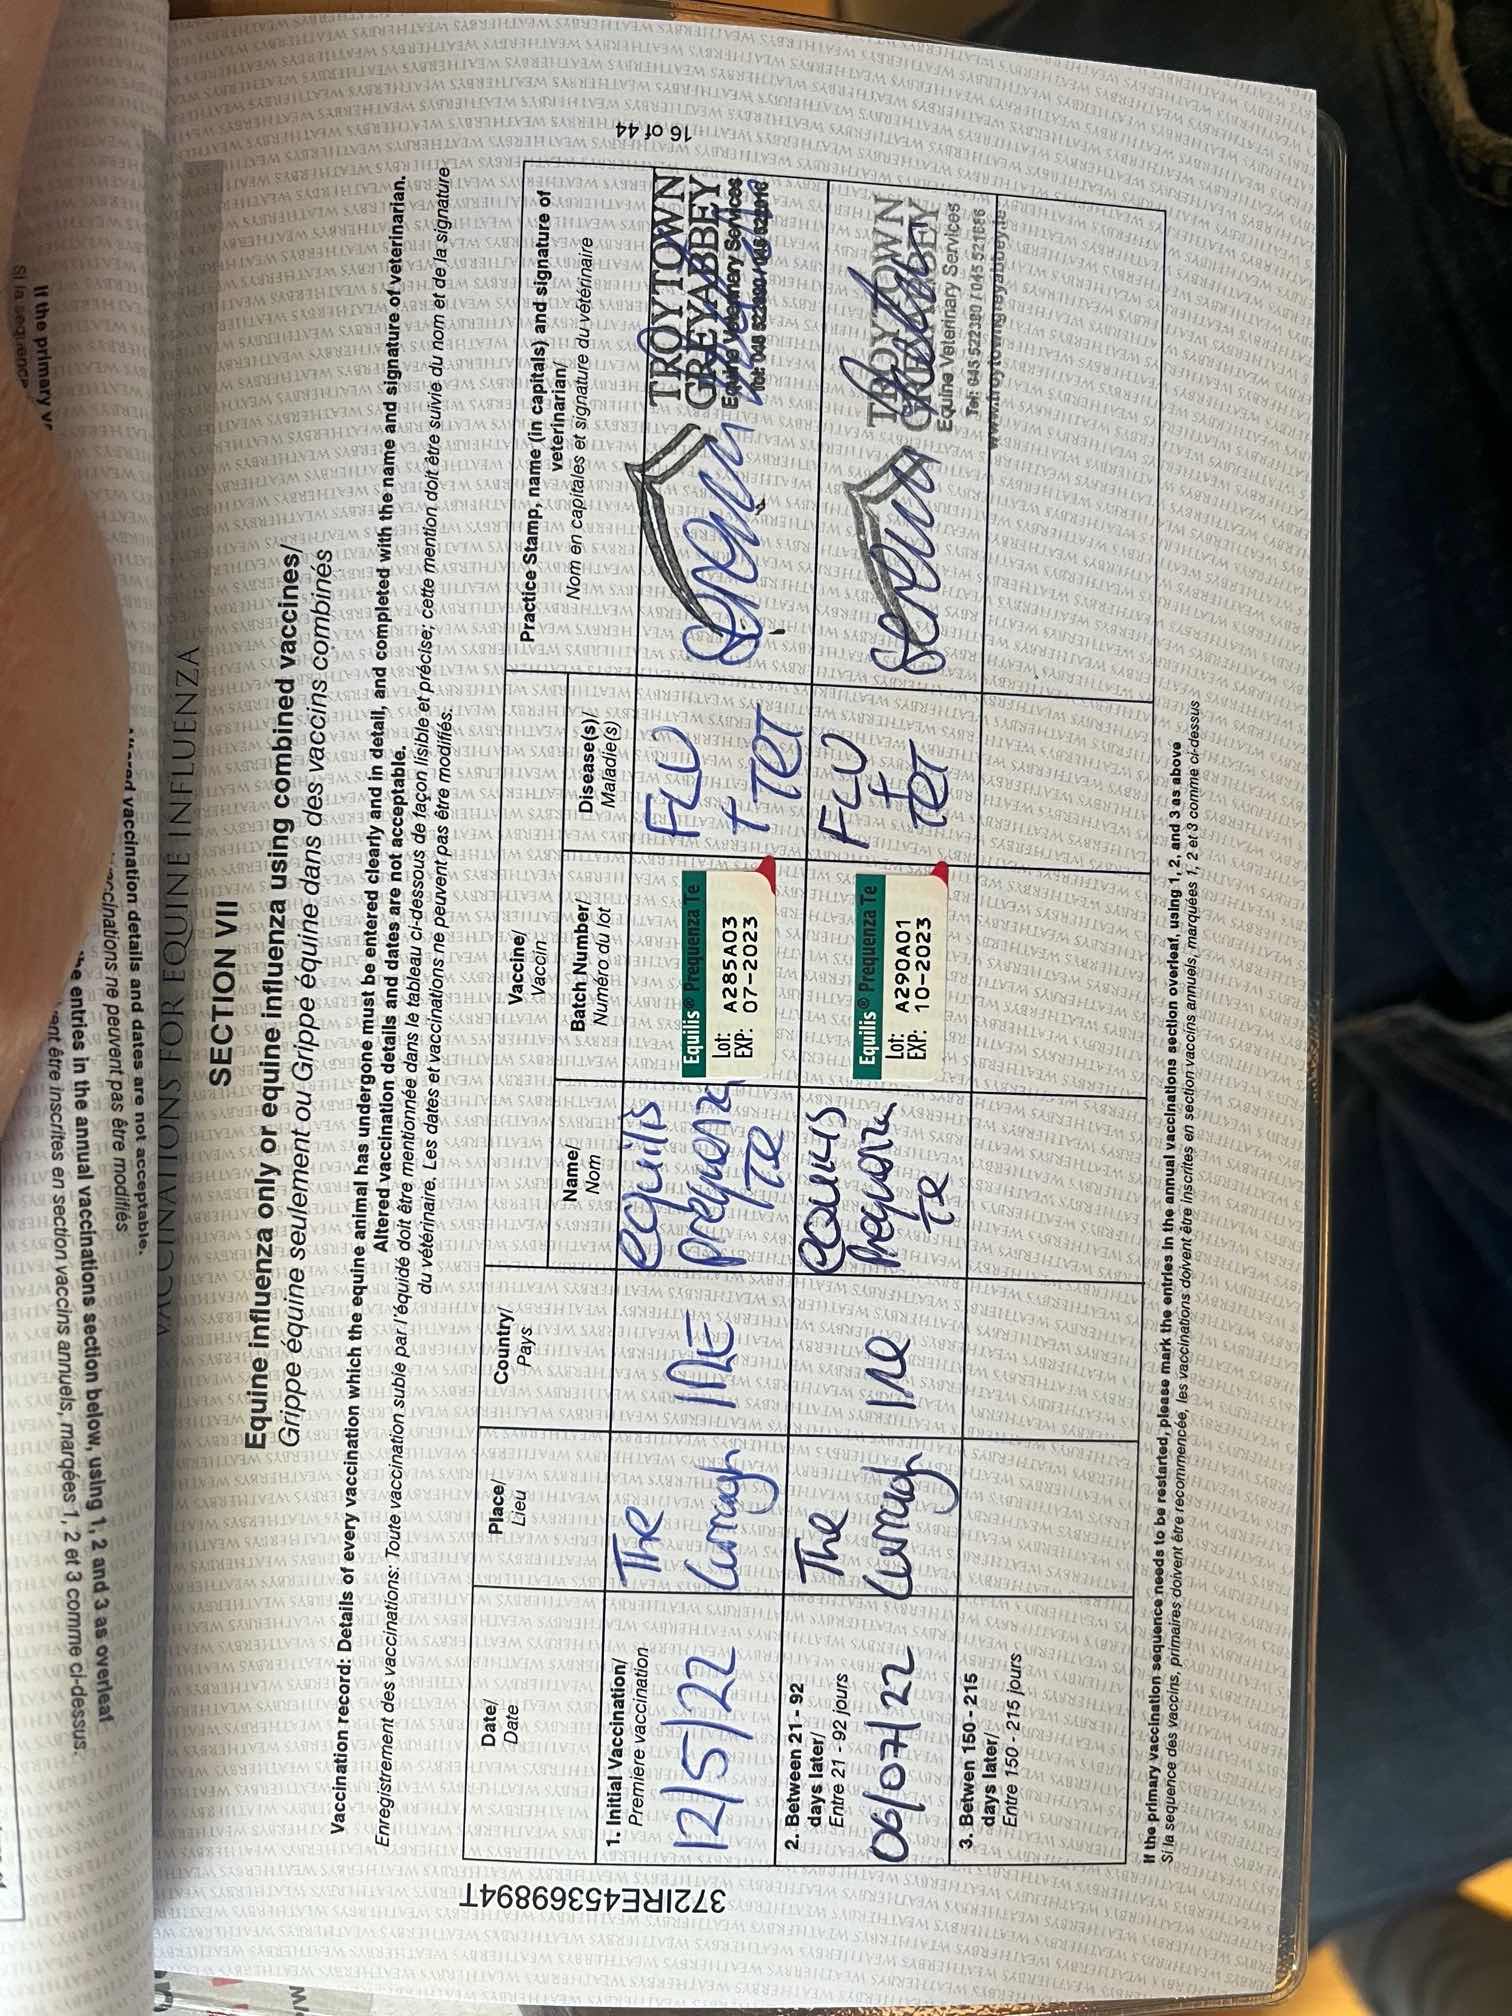 If the primary v
Si la sequence
vaccination details and dates are not acceptable.
vaccinations ne peuvent pas être modifiés
the entries in the annual vaccinations section below, using 1, 2 and 3 as overleaf
être inscrites en section vaccins annuels, margées 1, 2 et 3 comme ci-dessus.
VACCINATIONS FOR EQUINE INFLUENZA
SECTION VII
Equine influenza only or equine influenza using combined vaccines/
Grippe équine seulement ou Grippe équine dans des vaccins combinés
Vaccination record: Details of every vaccination which the equine animal has undergone must be entered clearly and in detail, and completed with the name and signature of veterinarian.
Altered vaccination details and dates are not acceptable.
Enregistrement des vaccinations: Toute vaccination subie par l'équidé doit être mentionnée dans le tableau ci-dessous de façon lisible et précise; cette mention doit être suivie du nom et de la signature
du vétérinaire. Les dates et vaccinations ne peuvent pas être modifiés.
Date/
Date
Place/
Lieu
Country/
Pays
Vaccine/
Vaccin
Name/
Nom
Batch Number/
Numéro du lot
Disease(s)/
Maladie(s)
Practice Stamp, name (in capitals) and signature of
veterinarian/
Nom en capitales et signature du vétérinaire
1. Initial Vaccination/
Premiere vaccination
12/5/22
The
Curragh
IRE
equilis
prequenza
Te
Equilis® Prequenza Te
Lot: A285A03
EXP: 07-2023
FLU
+ TET
TROYTOWN
GREYABBEY
Equine Veterinary Services
2. Between 21 - 92
days later/
Entre 21 - 92 jours
06/07/22
The
Curragh
IRE
equilis
prequenza
Te
Equilis® Prequenza Te
Lot: A290A01
EXP: 10-2023
FLU
+
TET
TROYTOWN
GREYABBEY
Equine Veterinary Services
Tel: 045 522380 / 045 521686
www.troytowngreyabbey.ie
3. Betwen 150 - 215
days later/
Entre 150 - 215 jours
If the primary vaccination sequence needs to be restarted, please mark the entries in the annual vaccinations section overleaf, using 1, 2, and 3 as above
Si la sequence des vaccins, primaires doivent être recommencée, les vaccinations doivent être inscrites en section vaccins annuels, marquées 1, 2 et 3 comme ci-dessus
16 of 44
372IRE45369894T